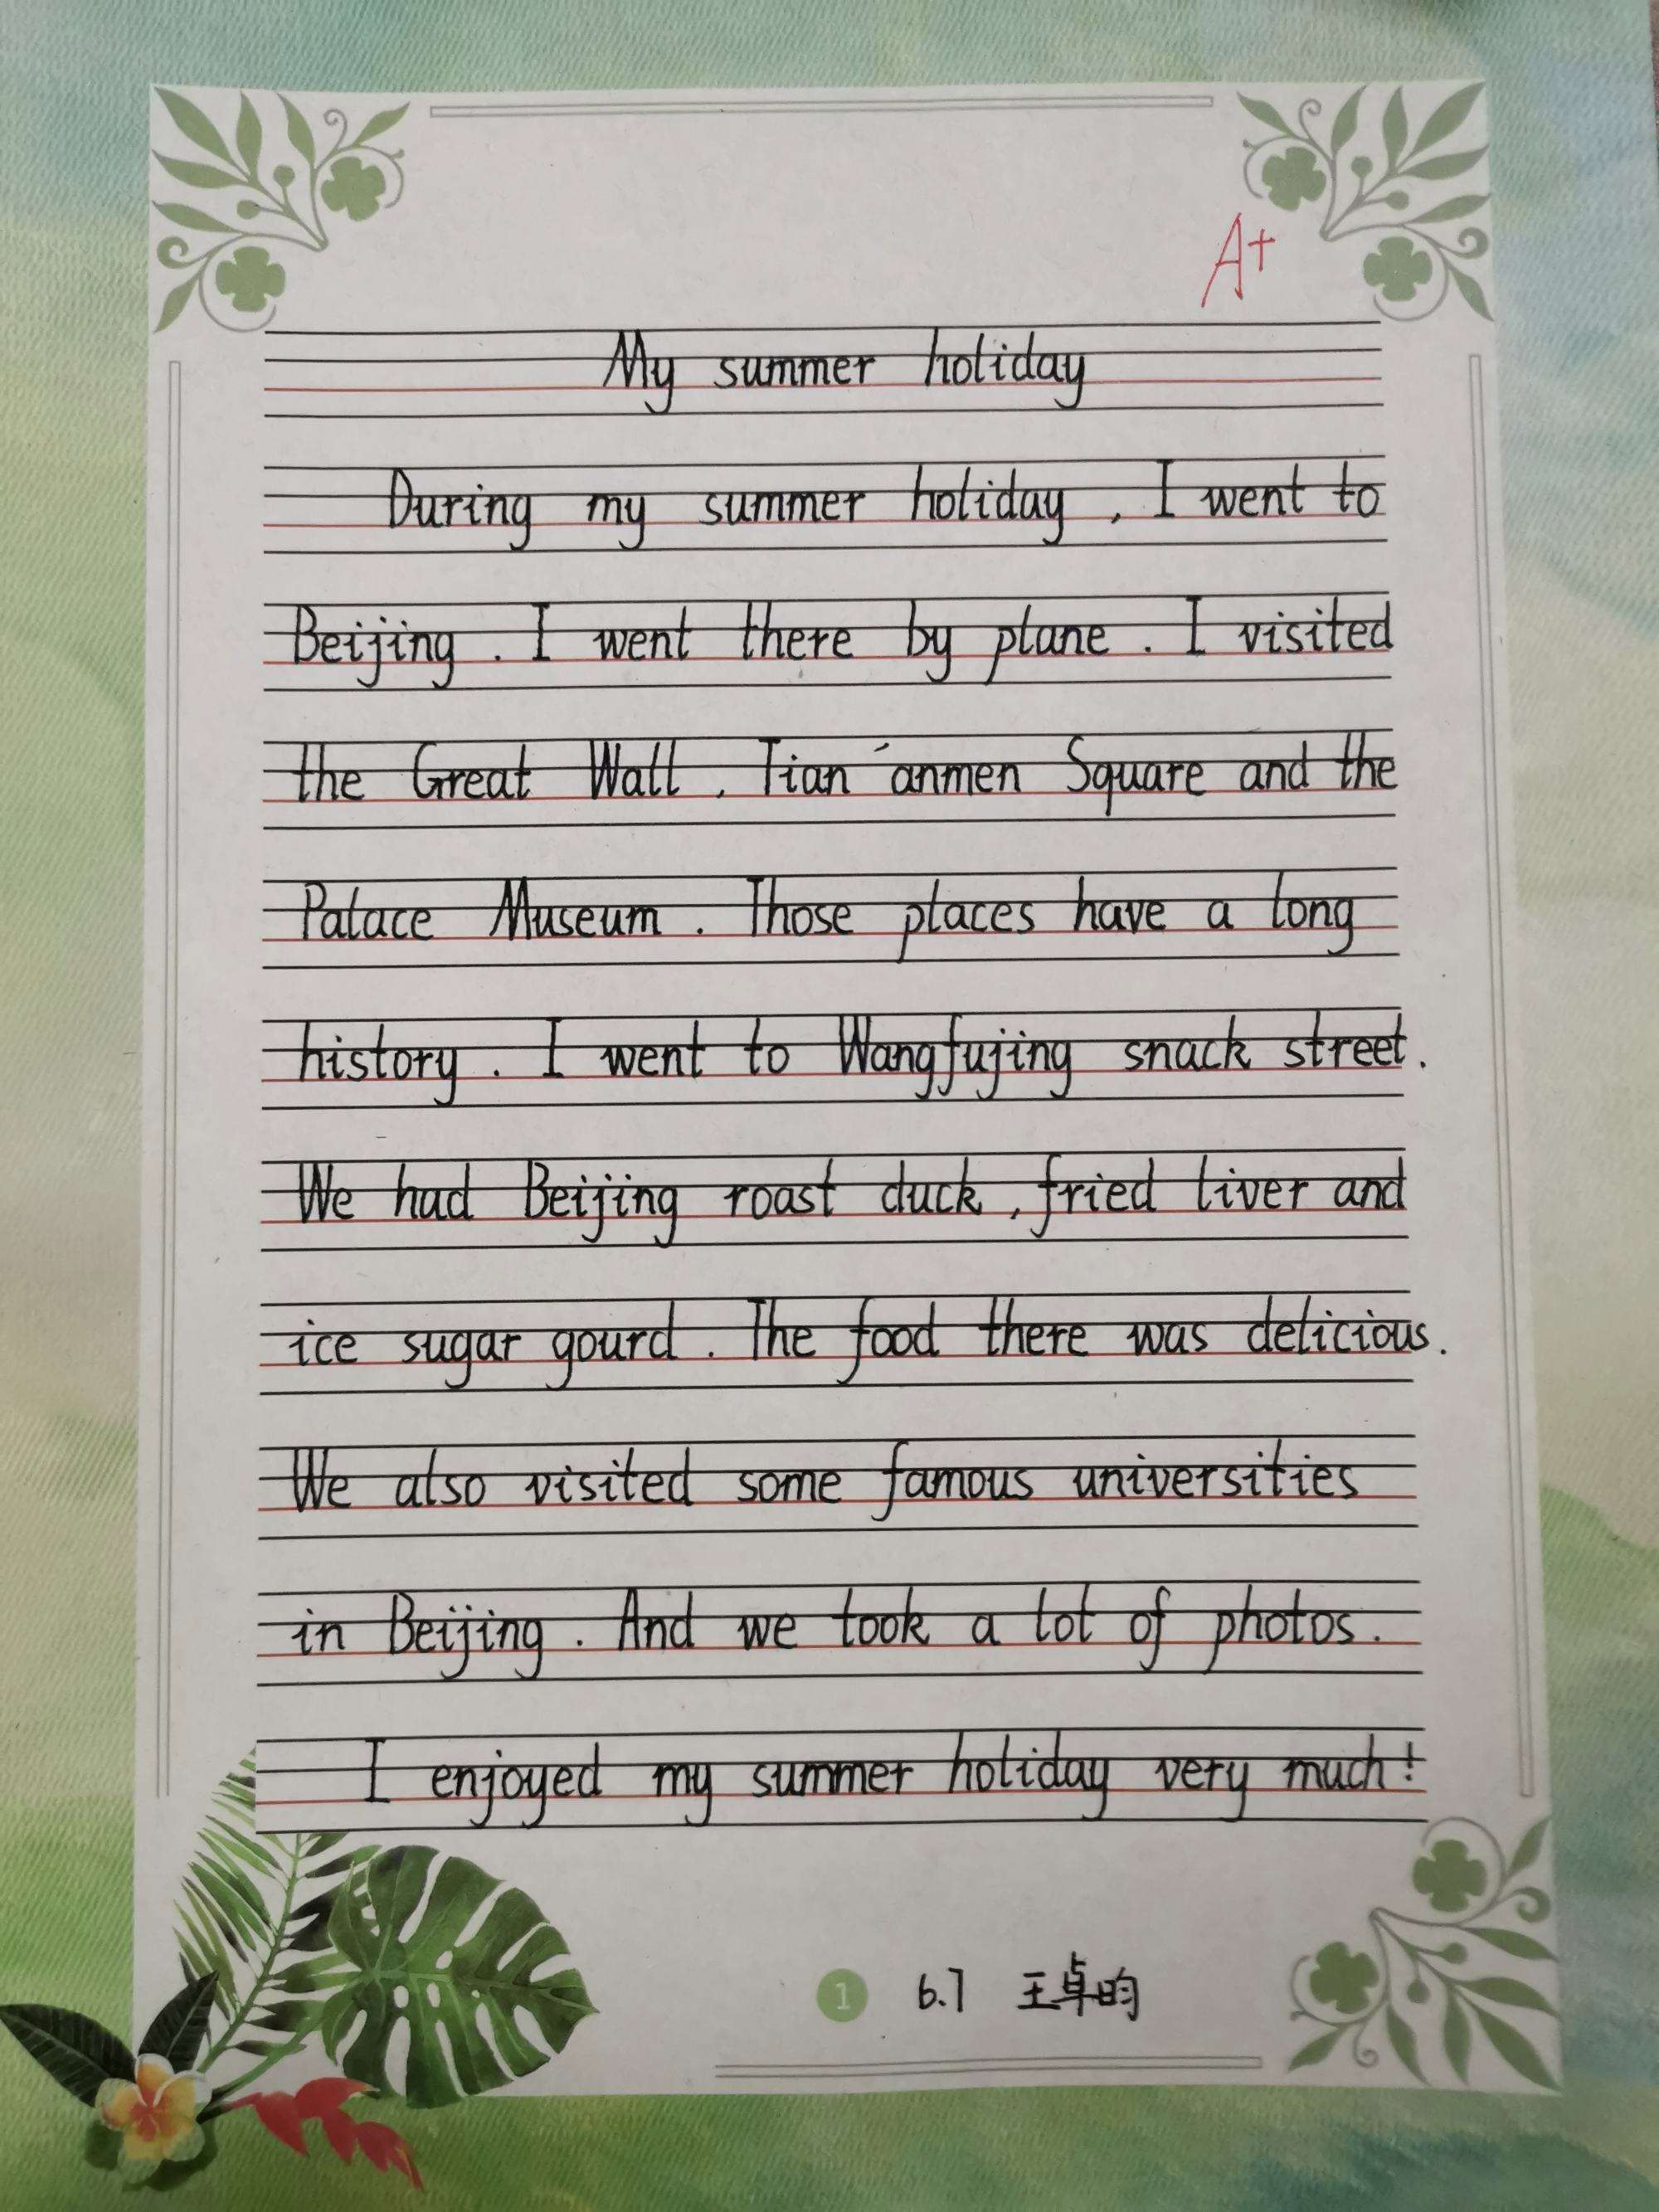 A+
My summer holiday
During my summer holiday, I went to
Beijing. I went there by plane. I visited
the Great Wall, Tian'anmen Square and the
Palace Museum. Those places have a long
history. I went to Wangfujing snack street.
We had Beijing roast duck, fried liver and
ice sugar gourd. The food there was delicious.
We also visited some famous universities
in Beijing. And we took a lot of photos.
I enjoyed my summer holiday very much!
1 6.7 王卓昀